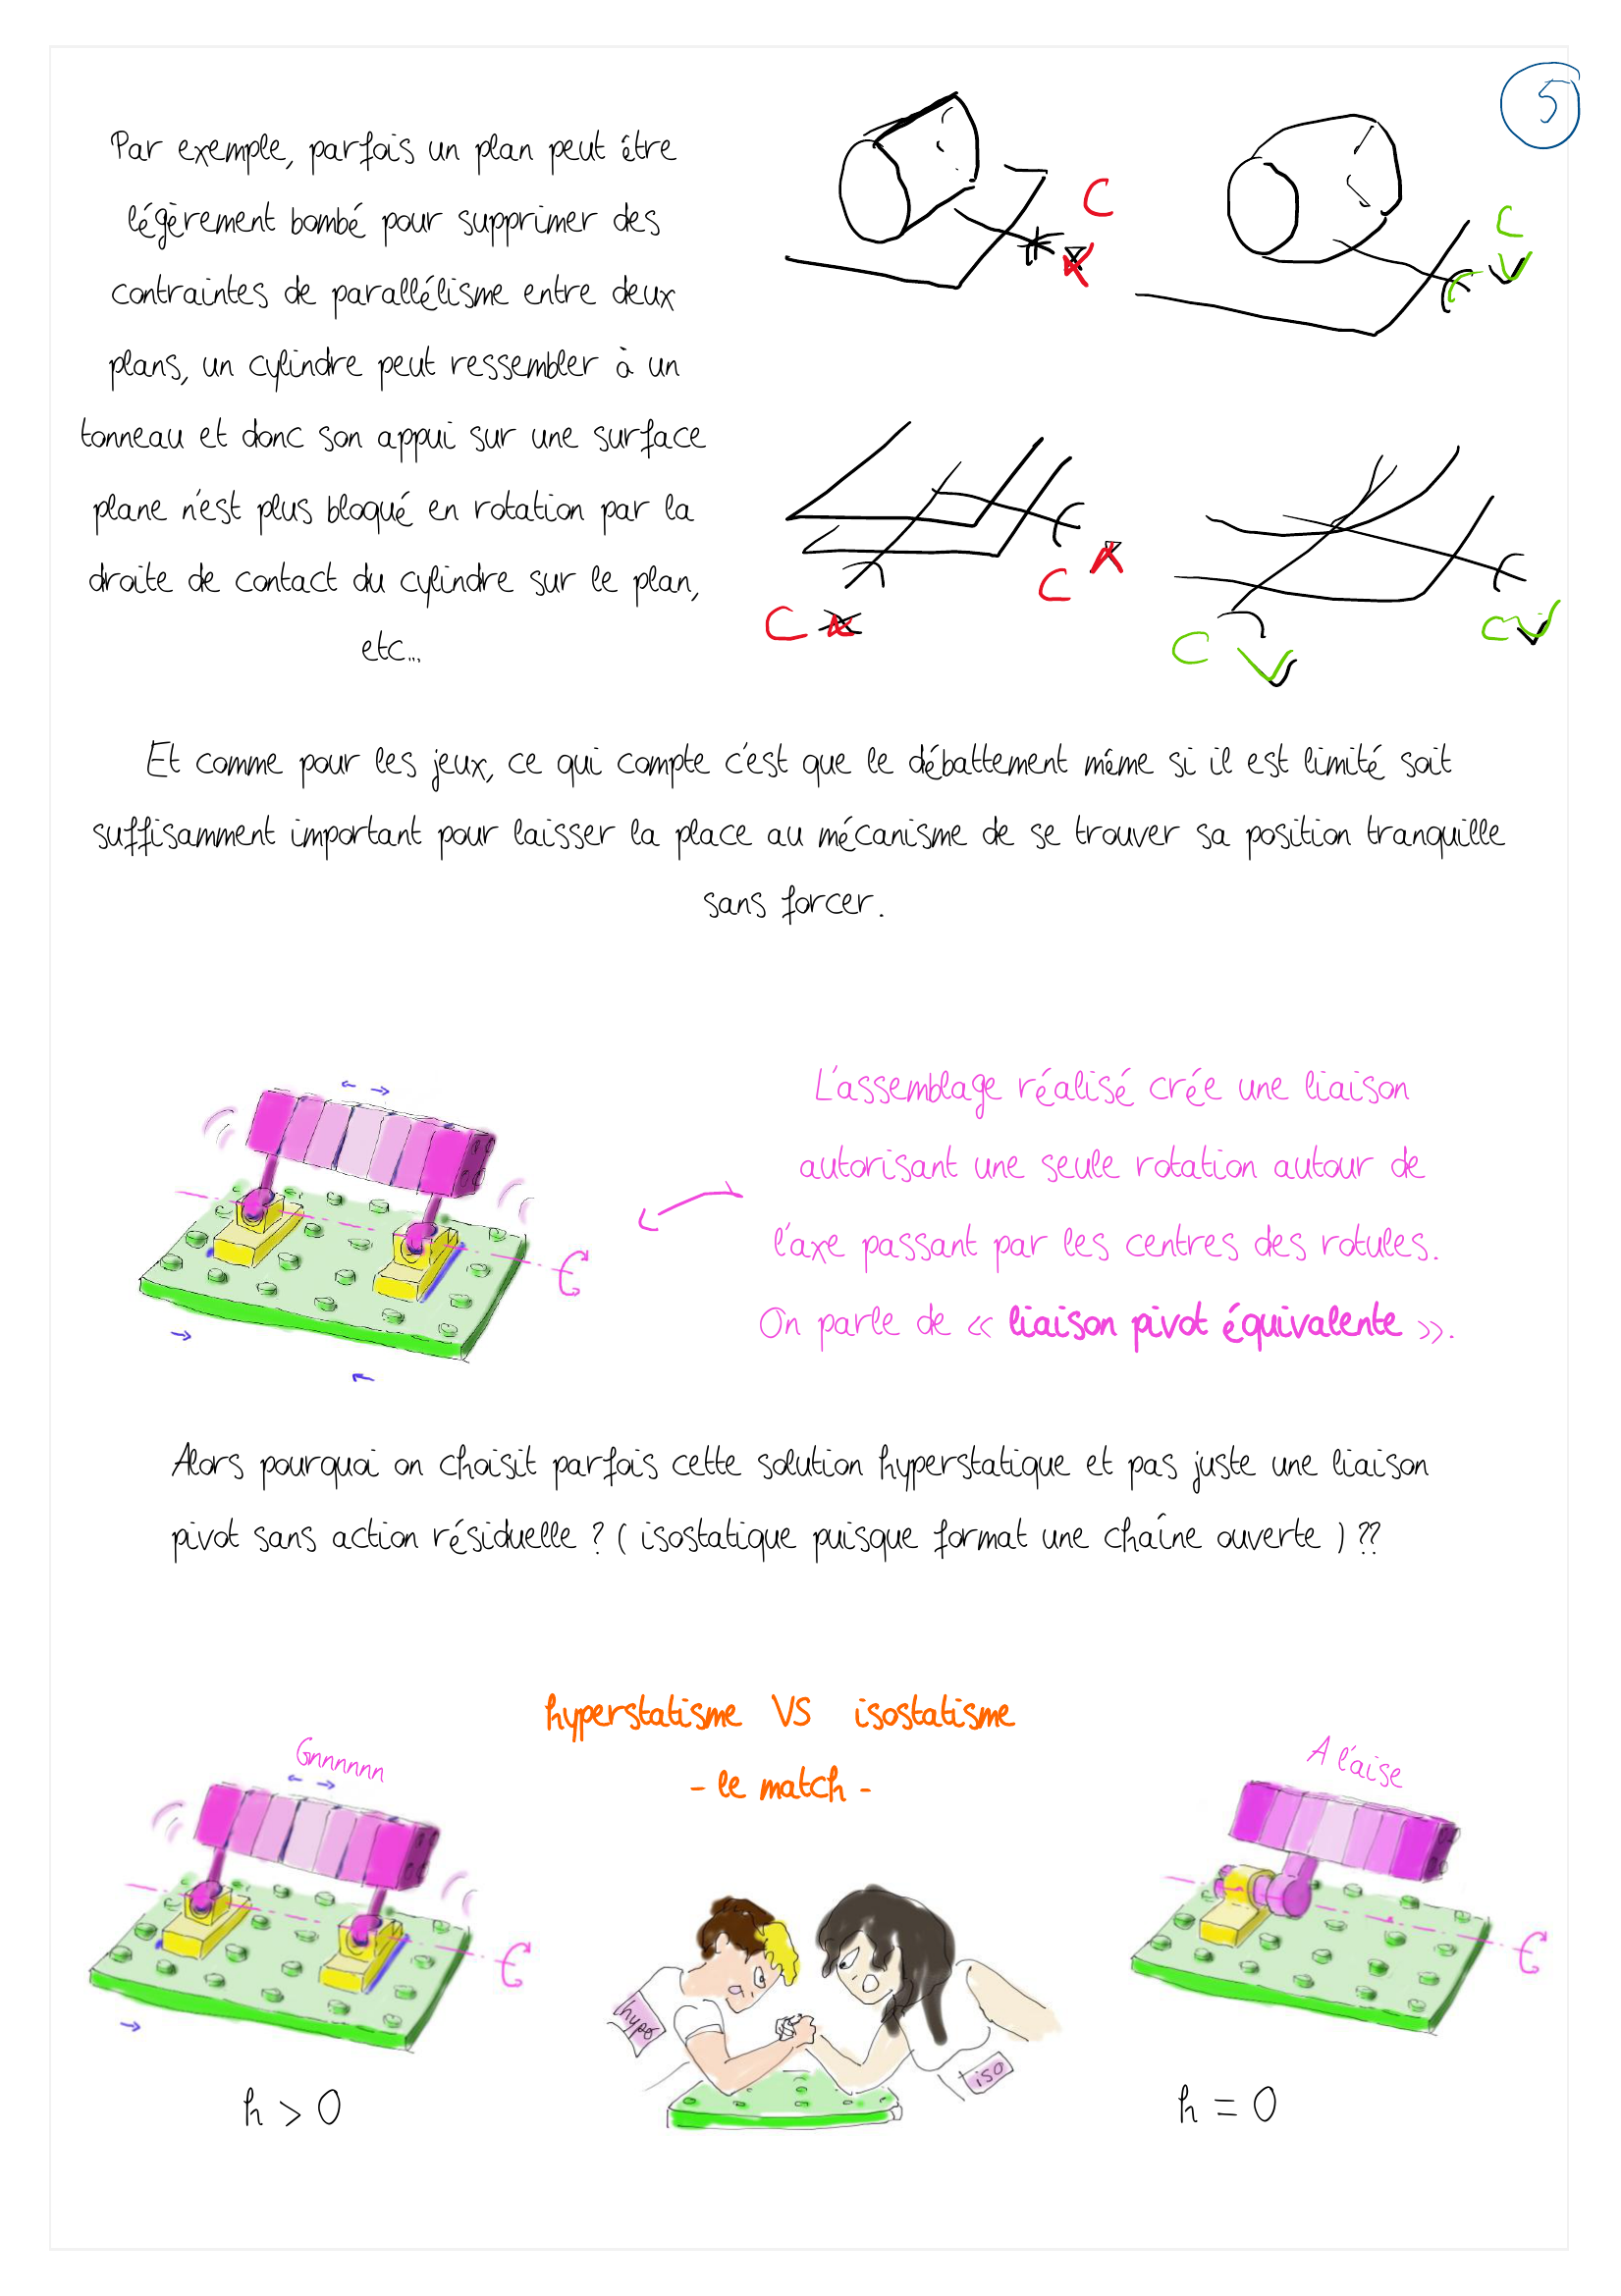 5
Par exemple, parfois un plan peut être
légèrement bombé pour supprimer des
contraintes de parallélisme entre deux
plans, un cylindre peut ressembler à un
tonneau et donc son appui sur une surface
plane n'est plus bloqué en rotation par la
droite de contact du cylindre sur le plan,
etc...
C
C
C
C
C
C
Et comme pour les jeux, ce qui compte c'est que le débattement même si il est limité soit
suffisamment important pour laisser la place au mécanisme de se trouver sa position tranquille
sans forcer.
L'assemblage réalisé crée une liaison
autorisant une seule rotation autour de
l'axe passant par les centres des rotules.
On parle de « liaison pivot équivalente ».
Alors pourquoi on choisit parfois cette solution hyperstatique et pas juste une liaison
pivot sans action résiduelle ? ( isostatique puisque format une chaîne ouverte ) ??
hyperstatisme VS isostatisme
- le match -
Gnnnnnn
A l'aise
hyper
iso
h > 0
h = 0